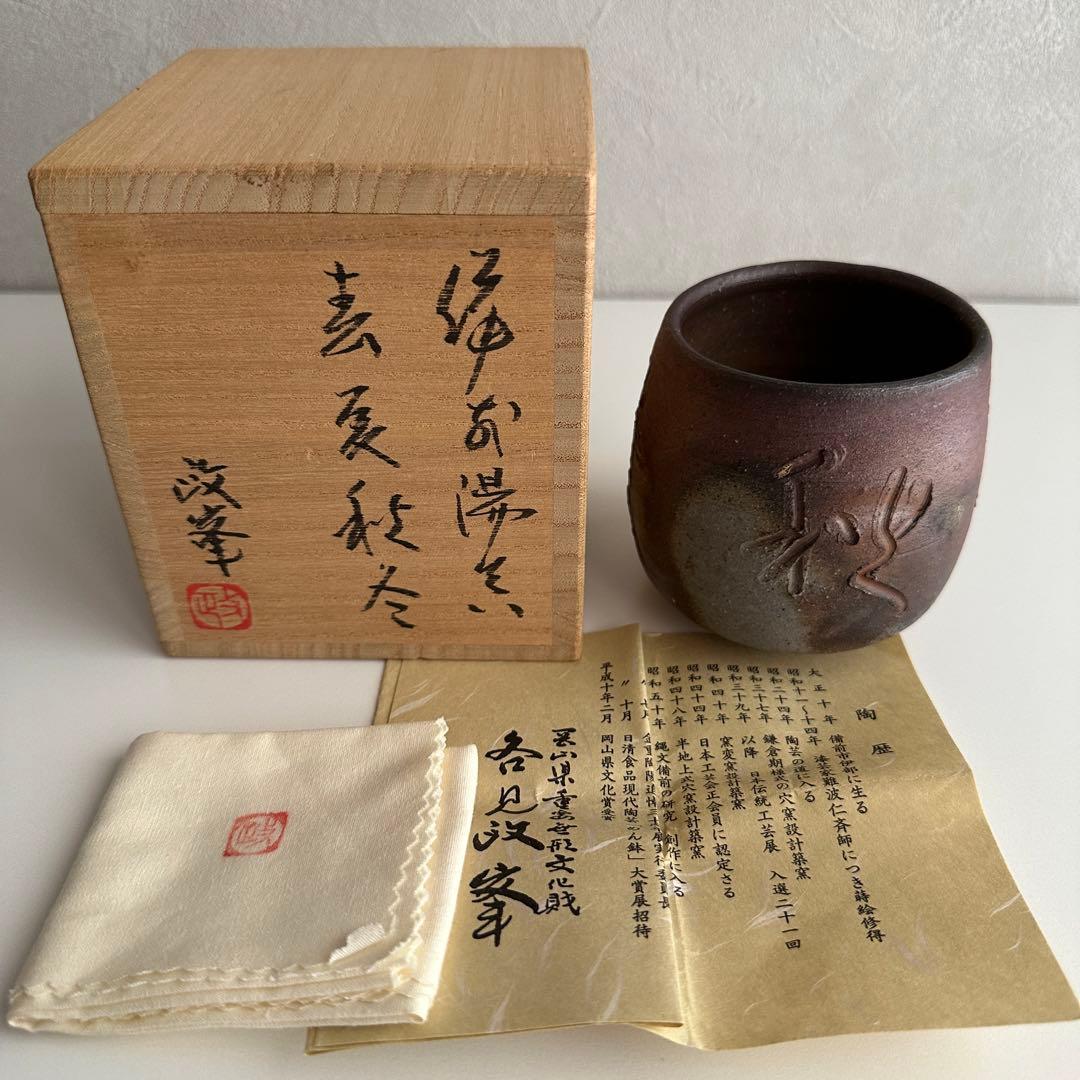 備前湯呑
春夏秋冬
政峯
政
秋
陶歴
大正十年 備前市伊部に生る
昭和十一〜十四年 漆芸家難波仁斉師につき蒔絵修得
昭和二十四年 陶芸の道に入る
昭和三十七年 鎌倉期様式の穴窯設計築窯
昭和三十九年 以降 日本伝統工芸展 入選二十一回
昭和四十年 窯変窯設計築窯
昭和四十四年 日本工芸会正会員に認定さる
昭和四十八年 半地上式穴窯設計築窯
昭和五十年 縄文備前の研究 創作に入る
〃 十月 日清食品現代陶芸めん鉢」大賞展招待
平成十年二月 岡山県文化賞受賞
岡山県重要無形文化財
各見政峯